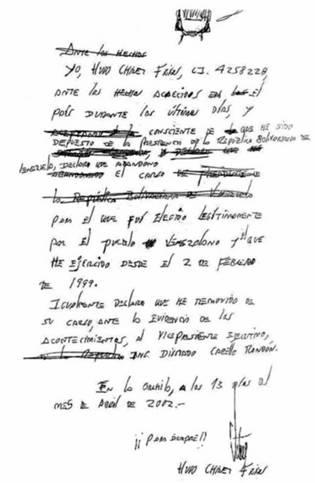 Ante los hechos
Yo, Hugo Chavez Frías, C.I. 4258228,
ANTE los HECHOS ACAECIDOS EN EL
PAÍS DURANTE los ÚLTIMOS DÍAS Y
CONSCIENTE DE QUE HE SIDO
DEPUESTO DE LA PRESIDENCIA DE LA REPÚBLICA BOLIVARIANA DE
VENEZUELA, DECLARO QUE ABANDONO
ABANDONADO EL CARGO DE PRESIDENTE DE
LA REPÚBLICA BOLIVARIANA DE VENEZUELA
PARA EL QUE FUI ELECTO LEGÍTIMAMENTE
POR EL PUEBLO VENEZOLANO Y QUE
HE EJERCIDO DESDE EL 2 DE FEBRERO
DE 1999.
IGUALMENTE DECLARO QUE HE REMOVIDO DE
SU CARGO, ANTE LA EVIDENCIA DE LOS
ACONTECIMIENTOS, AL VICEPRESIDENTE EJECUTIVO,
ING. DIOSDADO CABELLO RONDÓN.
EN LA ORCHILA, A LOS 13 DÍAS DEL
MES DE ABRIL DE 2002.-
¡¡PARA SIEMPRE!!
HUGO CHAVEZ FRÍAS